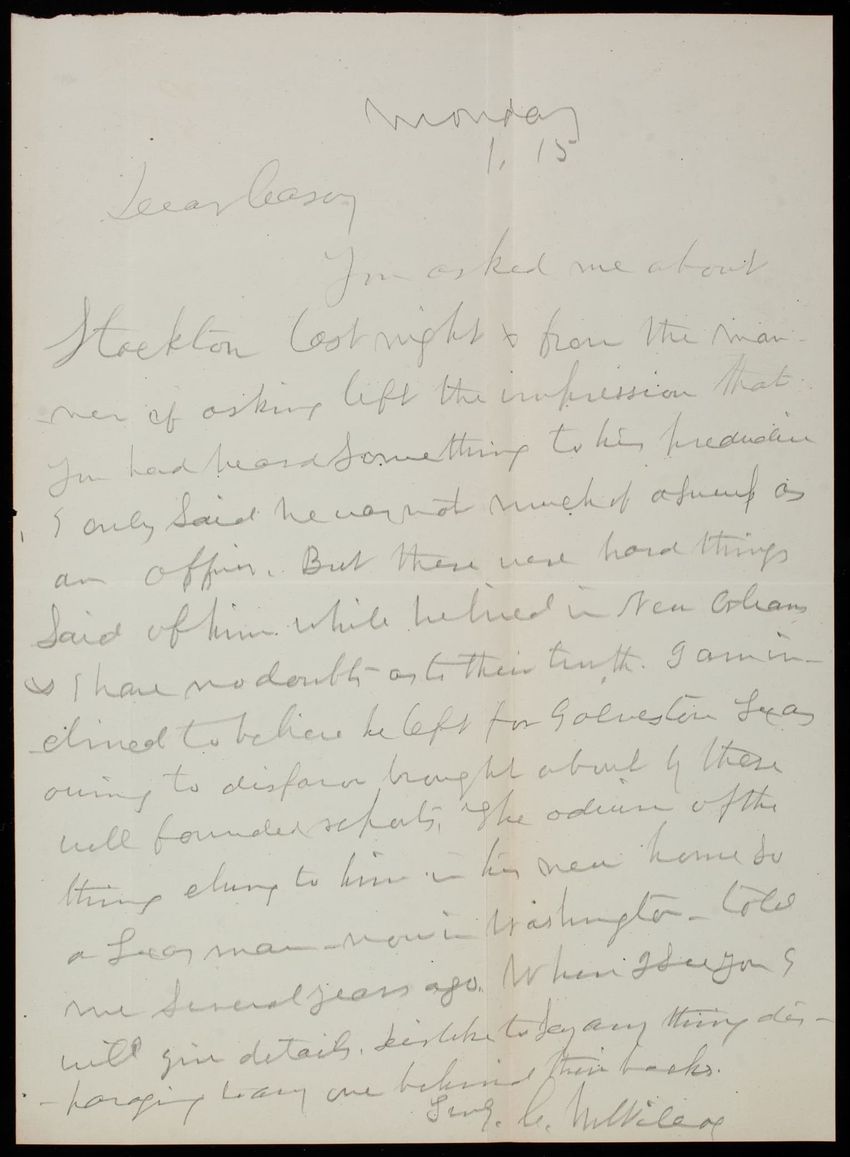 Monday
1. 15
Dear Casey
You asked me about
Stockton last night & from the man-
ner of asking left the impression that
you had heard something to his predudice
I only said he was not much of a success as
an officer. But there were hard things
said of him while he lived in New Orleans
& I have no doubts as to their truth. I am in-
clined to believe he left for Galveston Texas
owing to disfavor brought about by these
well founded reports. The odium of the
thing clung to him in his new home so
a Texas man - now in Washington - told
me several years ago. When I see you I
will give details. Dislike to say any thing dis-
- paraging to any one behind their backs.
C. M. Wilcox